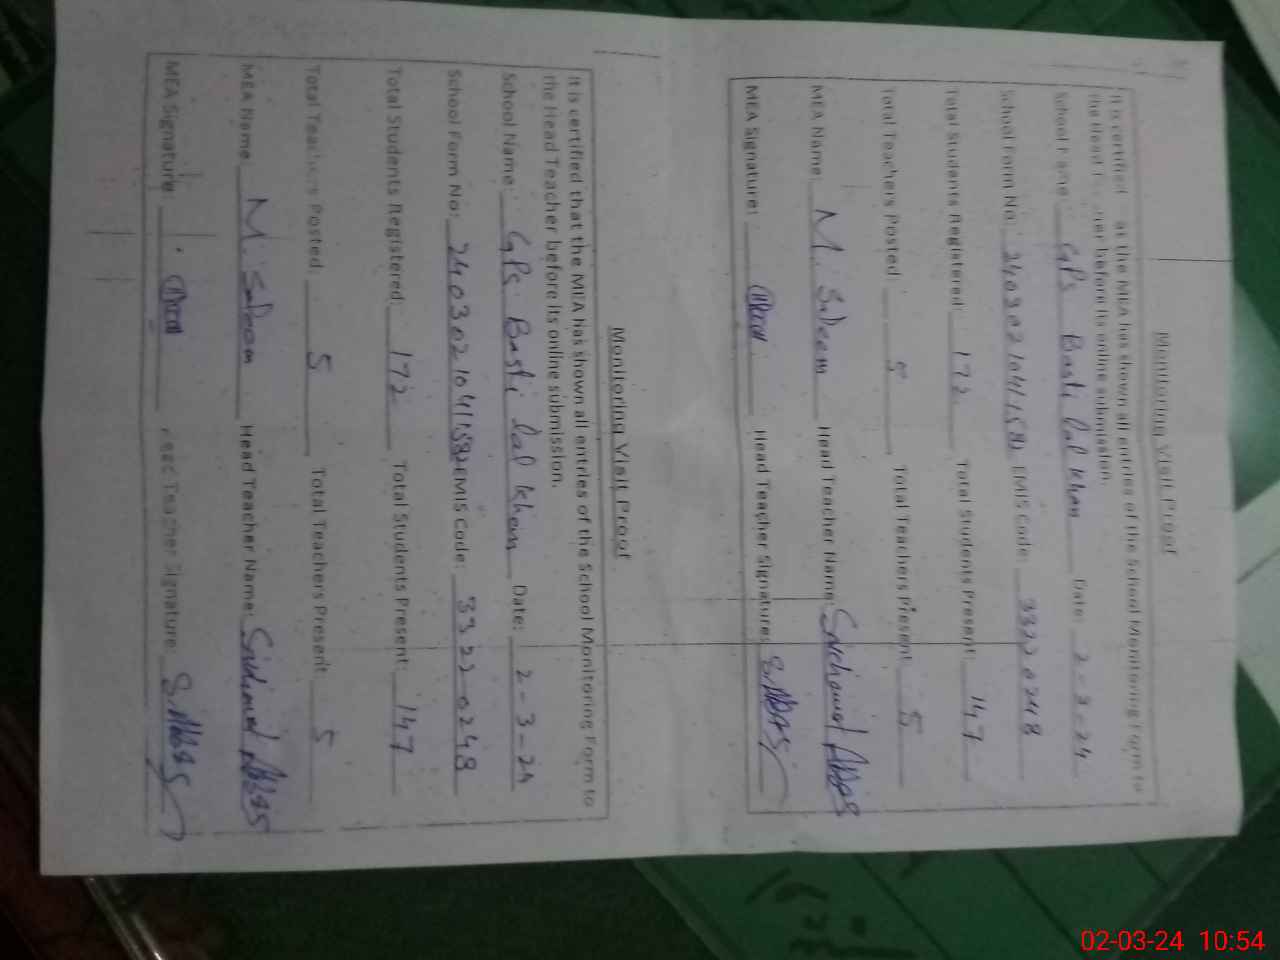 Monitoring Visit Proof
It is certified at the MEA has shown all entries of the School Monitoring Form to
the Head er before its online submission.
School Name: GPS Basti Lal Khan Date: 2-3-24
School Form No: EMIS Code: 33220248
Total Students Registered: 172 Total Students Present: 147
Total Teachers Posted 5 Total Teachers Present 5
MEA Name M. Saleem Head Teacher Name: Abbas
MEA Signature: Head Teacher Signature: S.Abbas
Monitoring Visit Proof
It is certified that the MEA has shown all entries of the School Monitoring Form to
the Head Teacher before its online submission.
School Name: GPS Basti Lal Khan Date: 2-3-24
School Form No: EMIS Code: 33220248
Total Students Registered 172 Total Students Present: 147
Total Teachers Posted 5 Total Teachers Present: 5
MEA Name M. Saleem Head Teacher Name: Abbas
MEA Signature: Teacher Signature S.Abbas
02-03-24 10:54